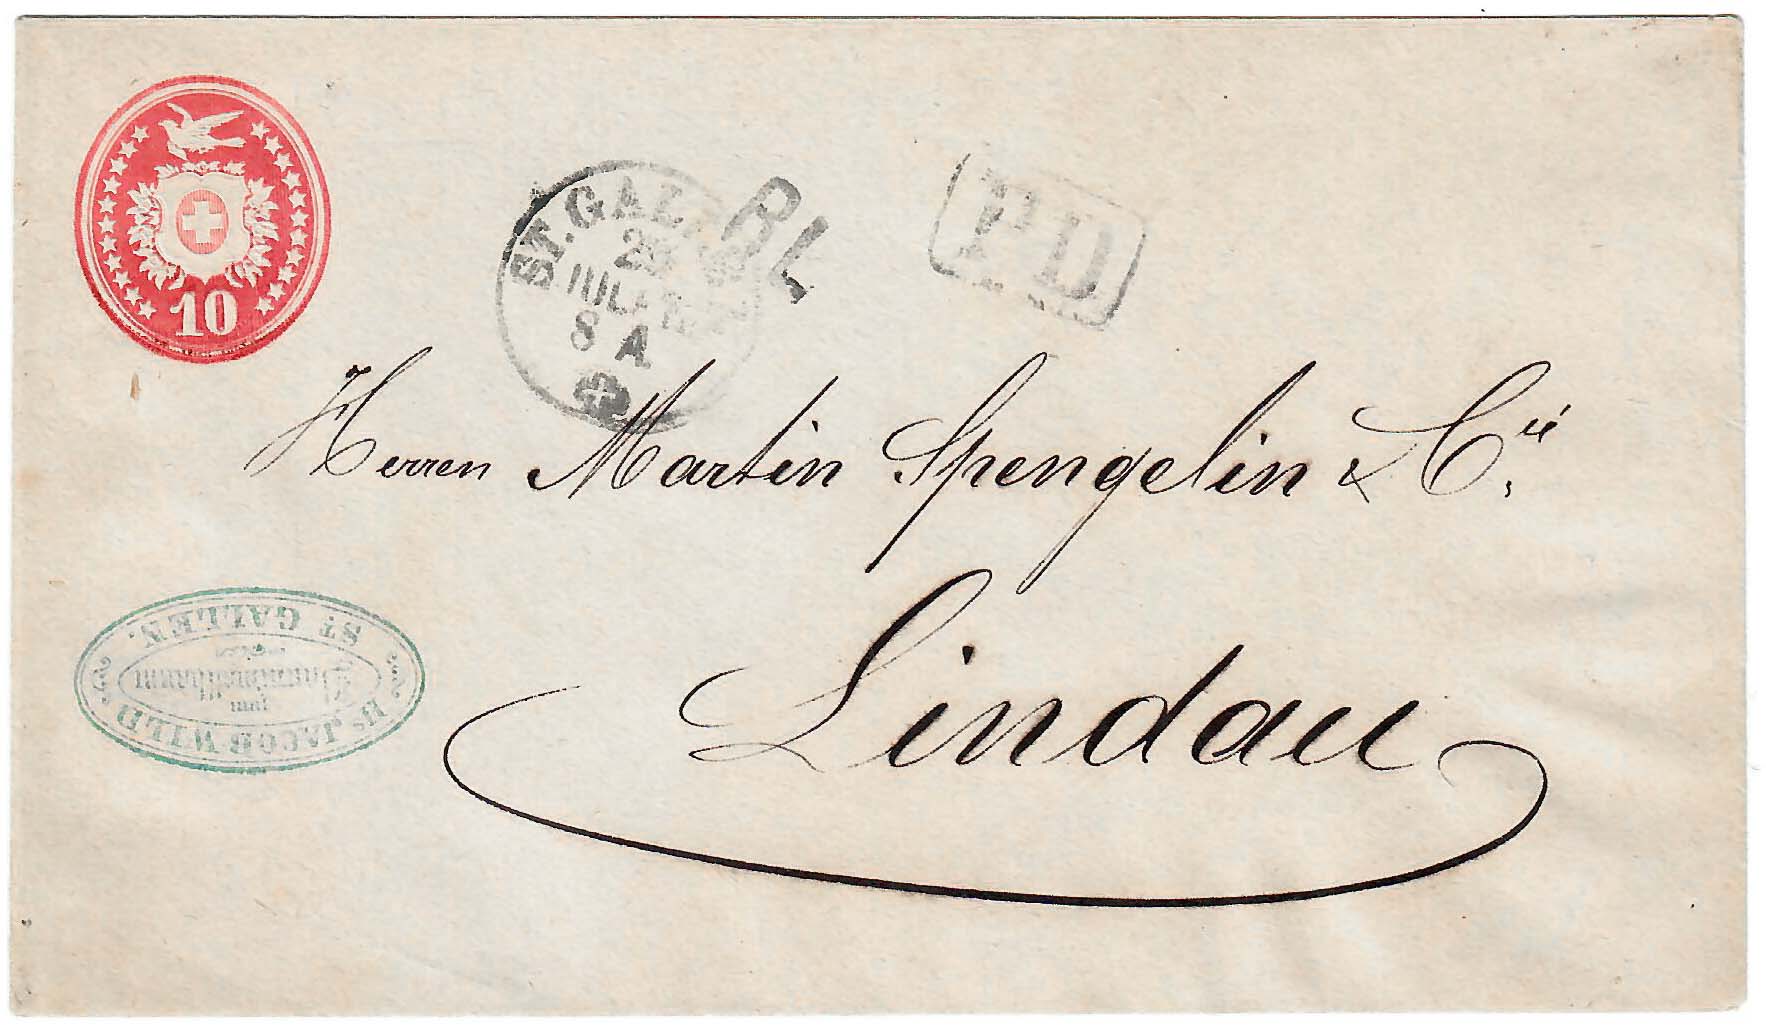 10
ST. GALLEN
RL
JUL
8 A
PD
Herren Martin Spengelin & Cie.
Lindau
Hs. JACOB WILD.
zum
ST GALLEN.